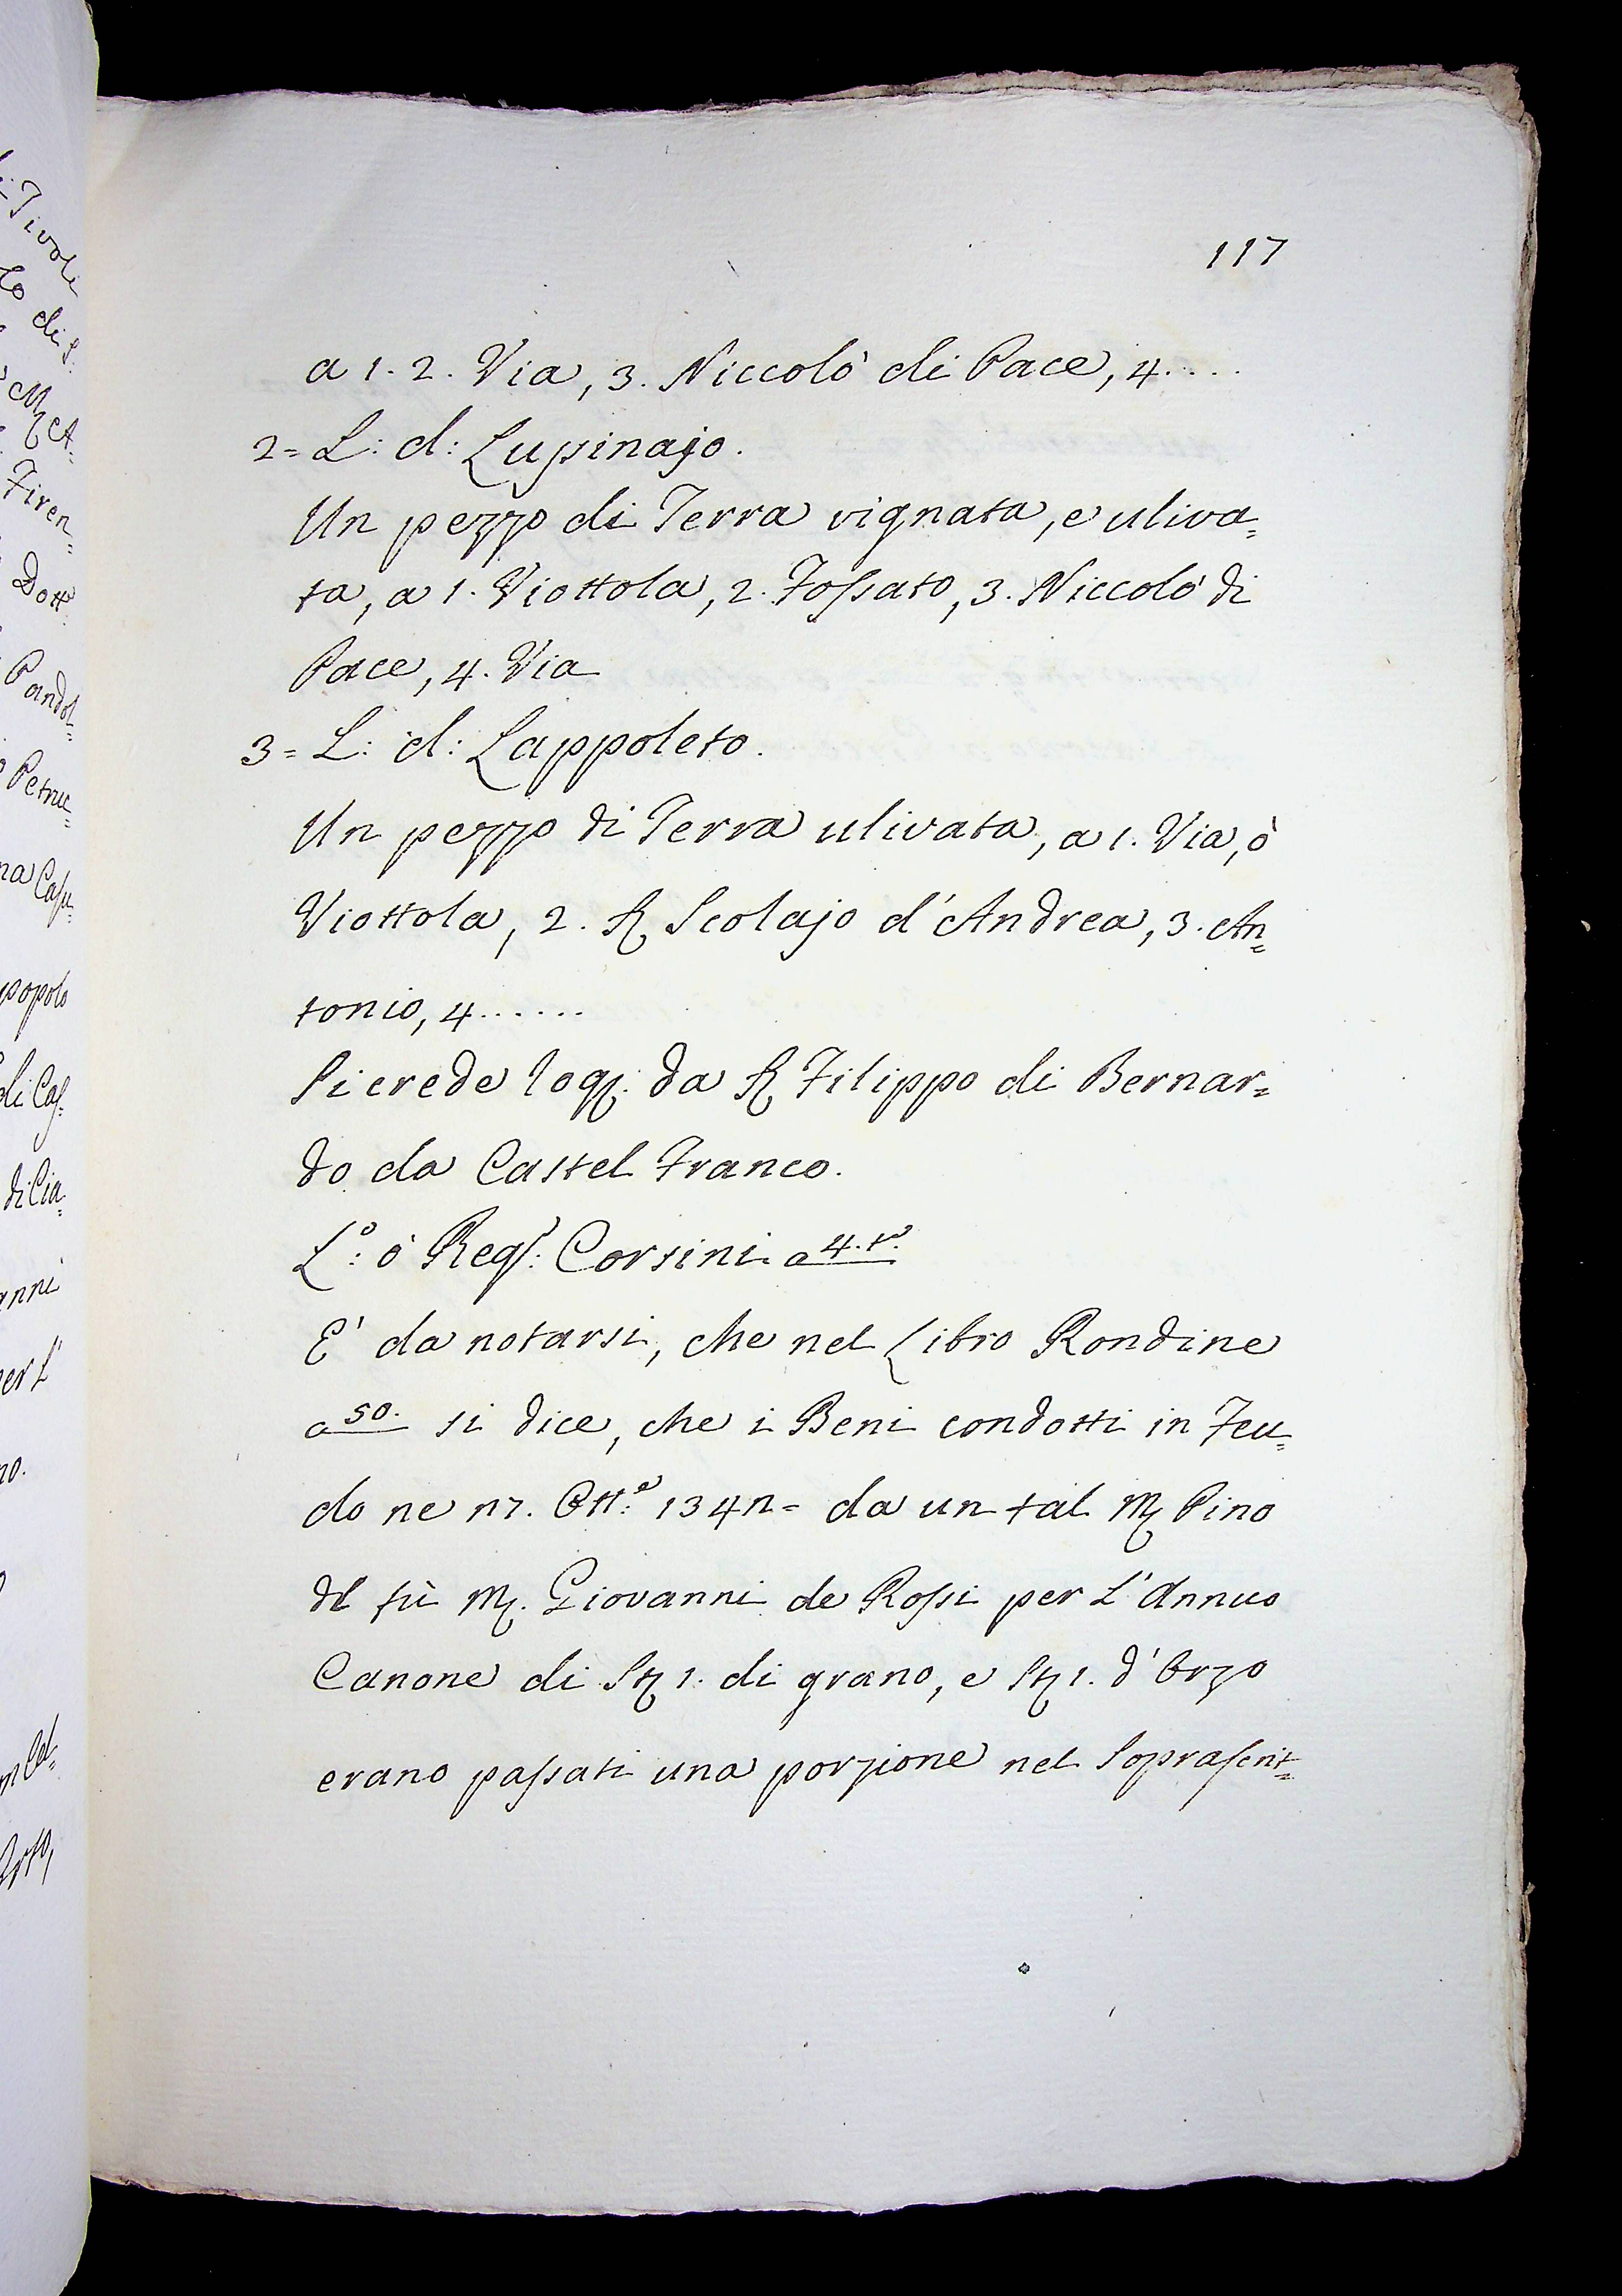 117
a 1. 2. Via, 3. Niccolò di Pace, 4....
2= L: d: Lupinajo.
Un pezzo di Terra vignata, e uliva=
ta, a 1. Viottola, 2. Fossato, 3. Niccolò di
Pace, 4. Via
3= L: d: Lappoleto.
Un pezzo di Terra ulivata, a 1. Via, ò
Viottola, 2. Scolajo d'Andrea, 3. An=
tonio, 4......
Si crede rog. da Filippo di Bernar=
do da Castel Franco.
L.º ò Reg. Corsini a 4. tº.
E' da notarsi, che nel Libro Rondine
a 50. si dice, che i Beni condotti in Feu=
do ne 17. Ott.e da un tal M Pino
del fù M. Giovanni de Rossi per L'Annuo
Canone di St 1. di grano, e St 1. d'Orzo
erano passati una porzione nel Soprascrit=